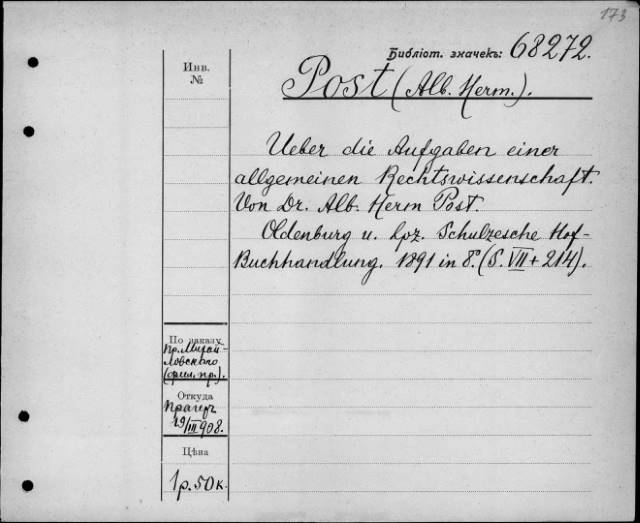 173
Библіот. значекъ: 68272.
Инв.
№
Post (Alb. Herm.).
Ueber die Aufgaben einer
allgemeinen Rechtswissenschaft.
Von Dr. Alb. Herm Post.
Oldenburg u. Lpz. Schulzesche Hof-
Buchhandlung. 1891 in 8º. (S. VII + 214).
По заказу
пр. Михай-
ловскаго
Откуда
Прагеръ
19/III 908.
Цѣна
1 р. 50 к.